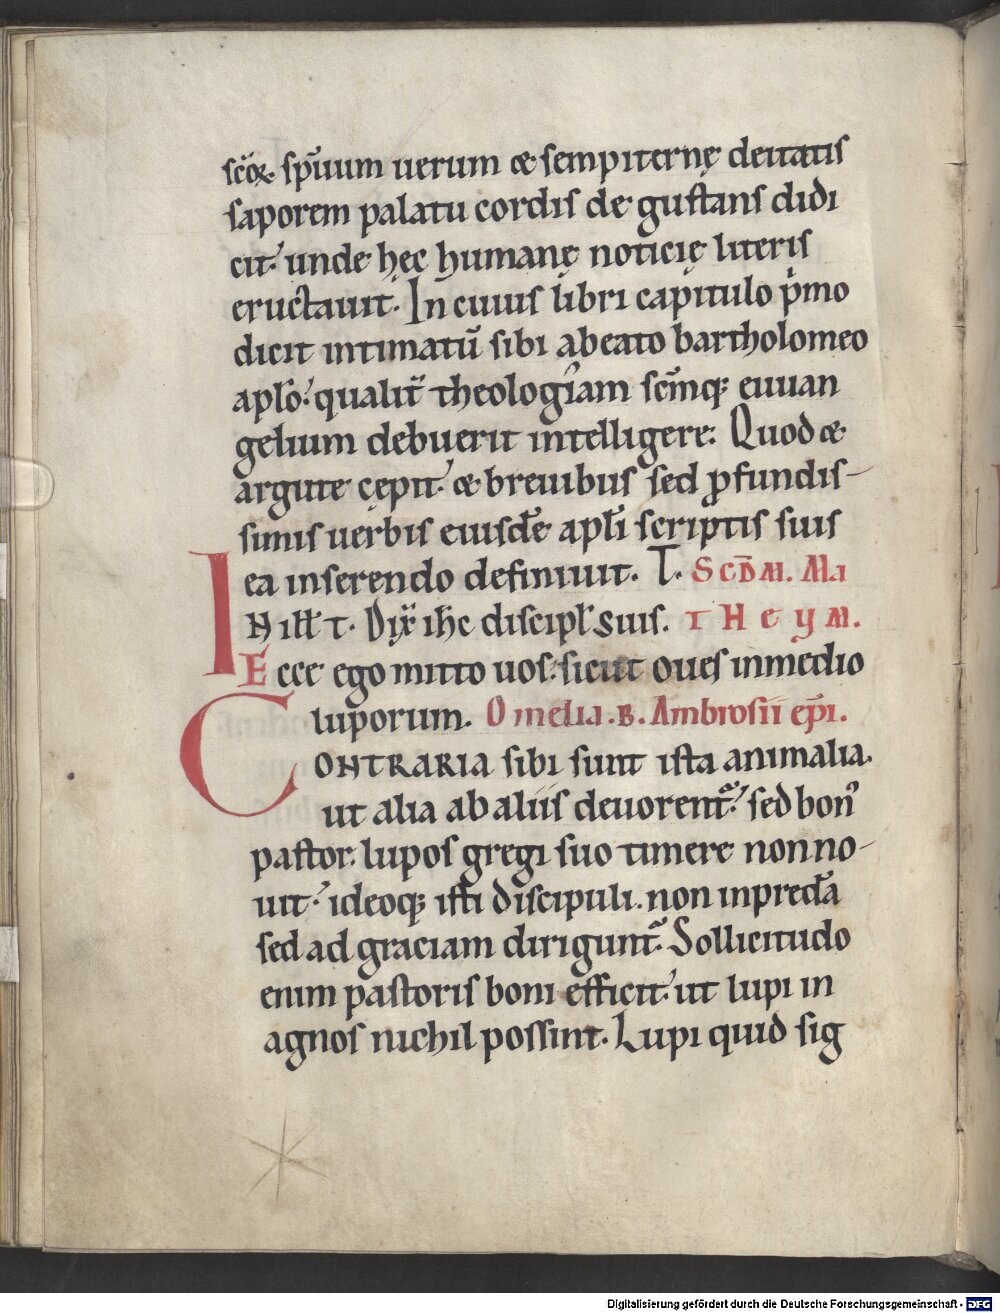 scōꝝ sp̄uum uerum & sempiternę deitatis
saporem palatu cordis de gustans didi
cit. unde hęc humanę noticię literis
eructauit. In cuius libri capitulo p̍mo
dicit intimatū sibi abeato bartholomeo
apl̄o. qualit̄ theologiam scām q; euuan
gelium debuerit intelligere: Quod &
argute cępit. & breuibus sed ꝓfundis-
simis uerbis eiusdē apl̄i scriptis suis
ea inserendo definiuit. T. Scd̄M. Ma
IN ill̄ t. Dix̄ ihc discipl̄ suis. THeyM.
Ecce ego mitto uos. sicut oues inmedio
luporum. Omelia .B. Ambrosii ep̄i.
CONTRARIA sibi sunt ista animalia.
ut alia ab aliis deuorent̄. sed bonꝰ
pastor. lupos gregi suo timere non no-
uit. ideoq; isti discipuli. non inpredā
sed ad graciam dirigunt̄. Sollicitudo
enim pastoris boni efficit. ut lupi in
agnos nichil possint. Lupi quid sig
Digitalisierung gefördert durch die Deutsche Forschungsgemeinschaft - DFG